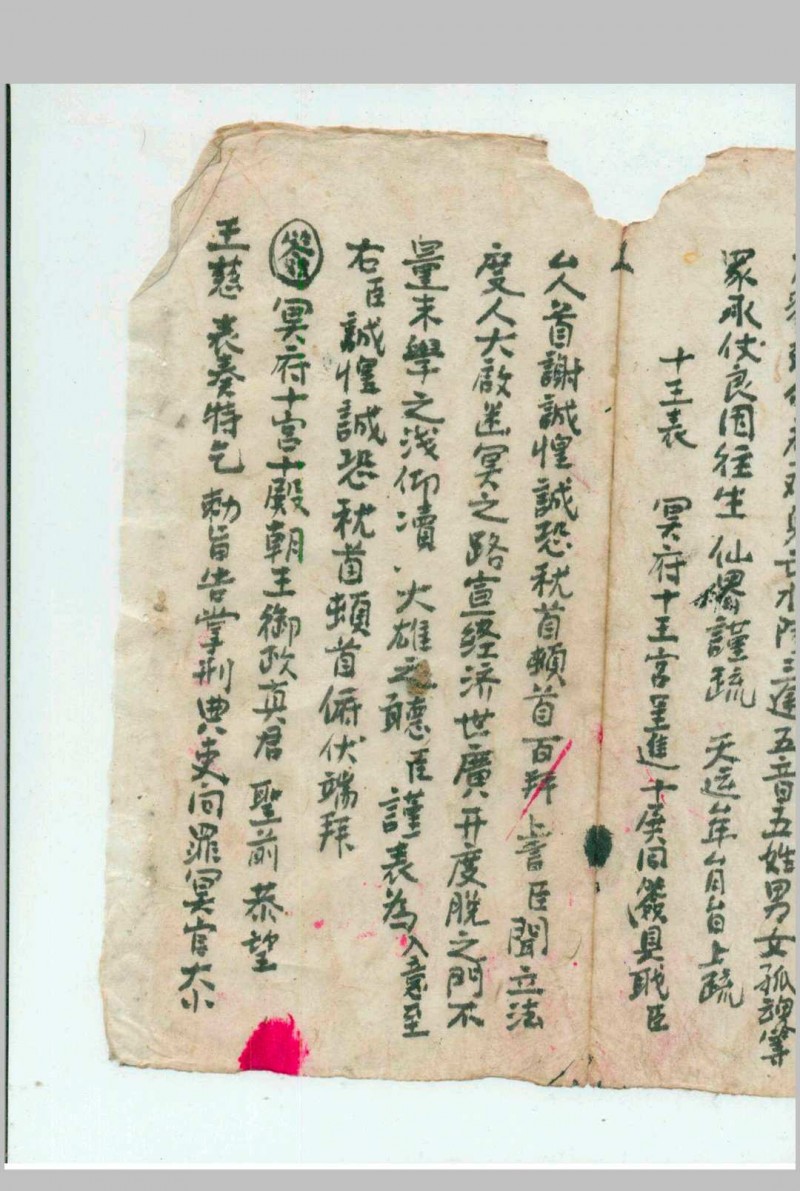 五音五姓男女孤魂等
眾承伏良因往生 仙界謹疏 天运年月日上疏
十王表 冥府十王宮呈進 十庚同發具职臣
厶人首謝誠惶誠恐秋首頓首百拜上言臣聞立法
度人大啟幽冥之路宣经济世廣开度脫之門不
量末學之浅仰凟 大雄之聽臣謹表為 入意至
右臣誠惶誠恐秋首頓首俯伏端拜
冥府十宮十殿朝王御政真君 聖前 恭望
王慈 表奏特乞 勅旨告掌刑典吏问罪冥官大小